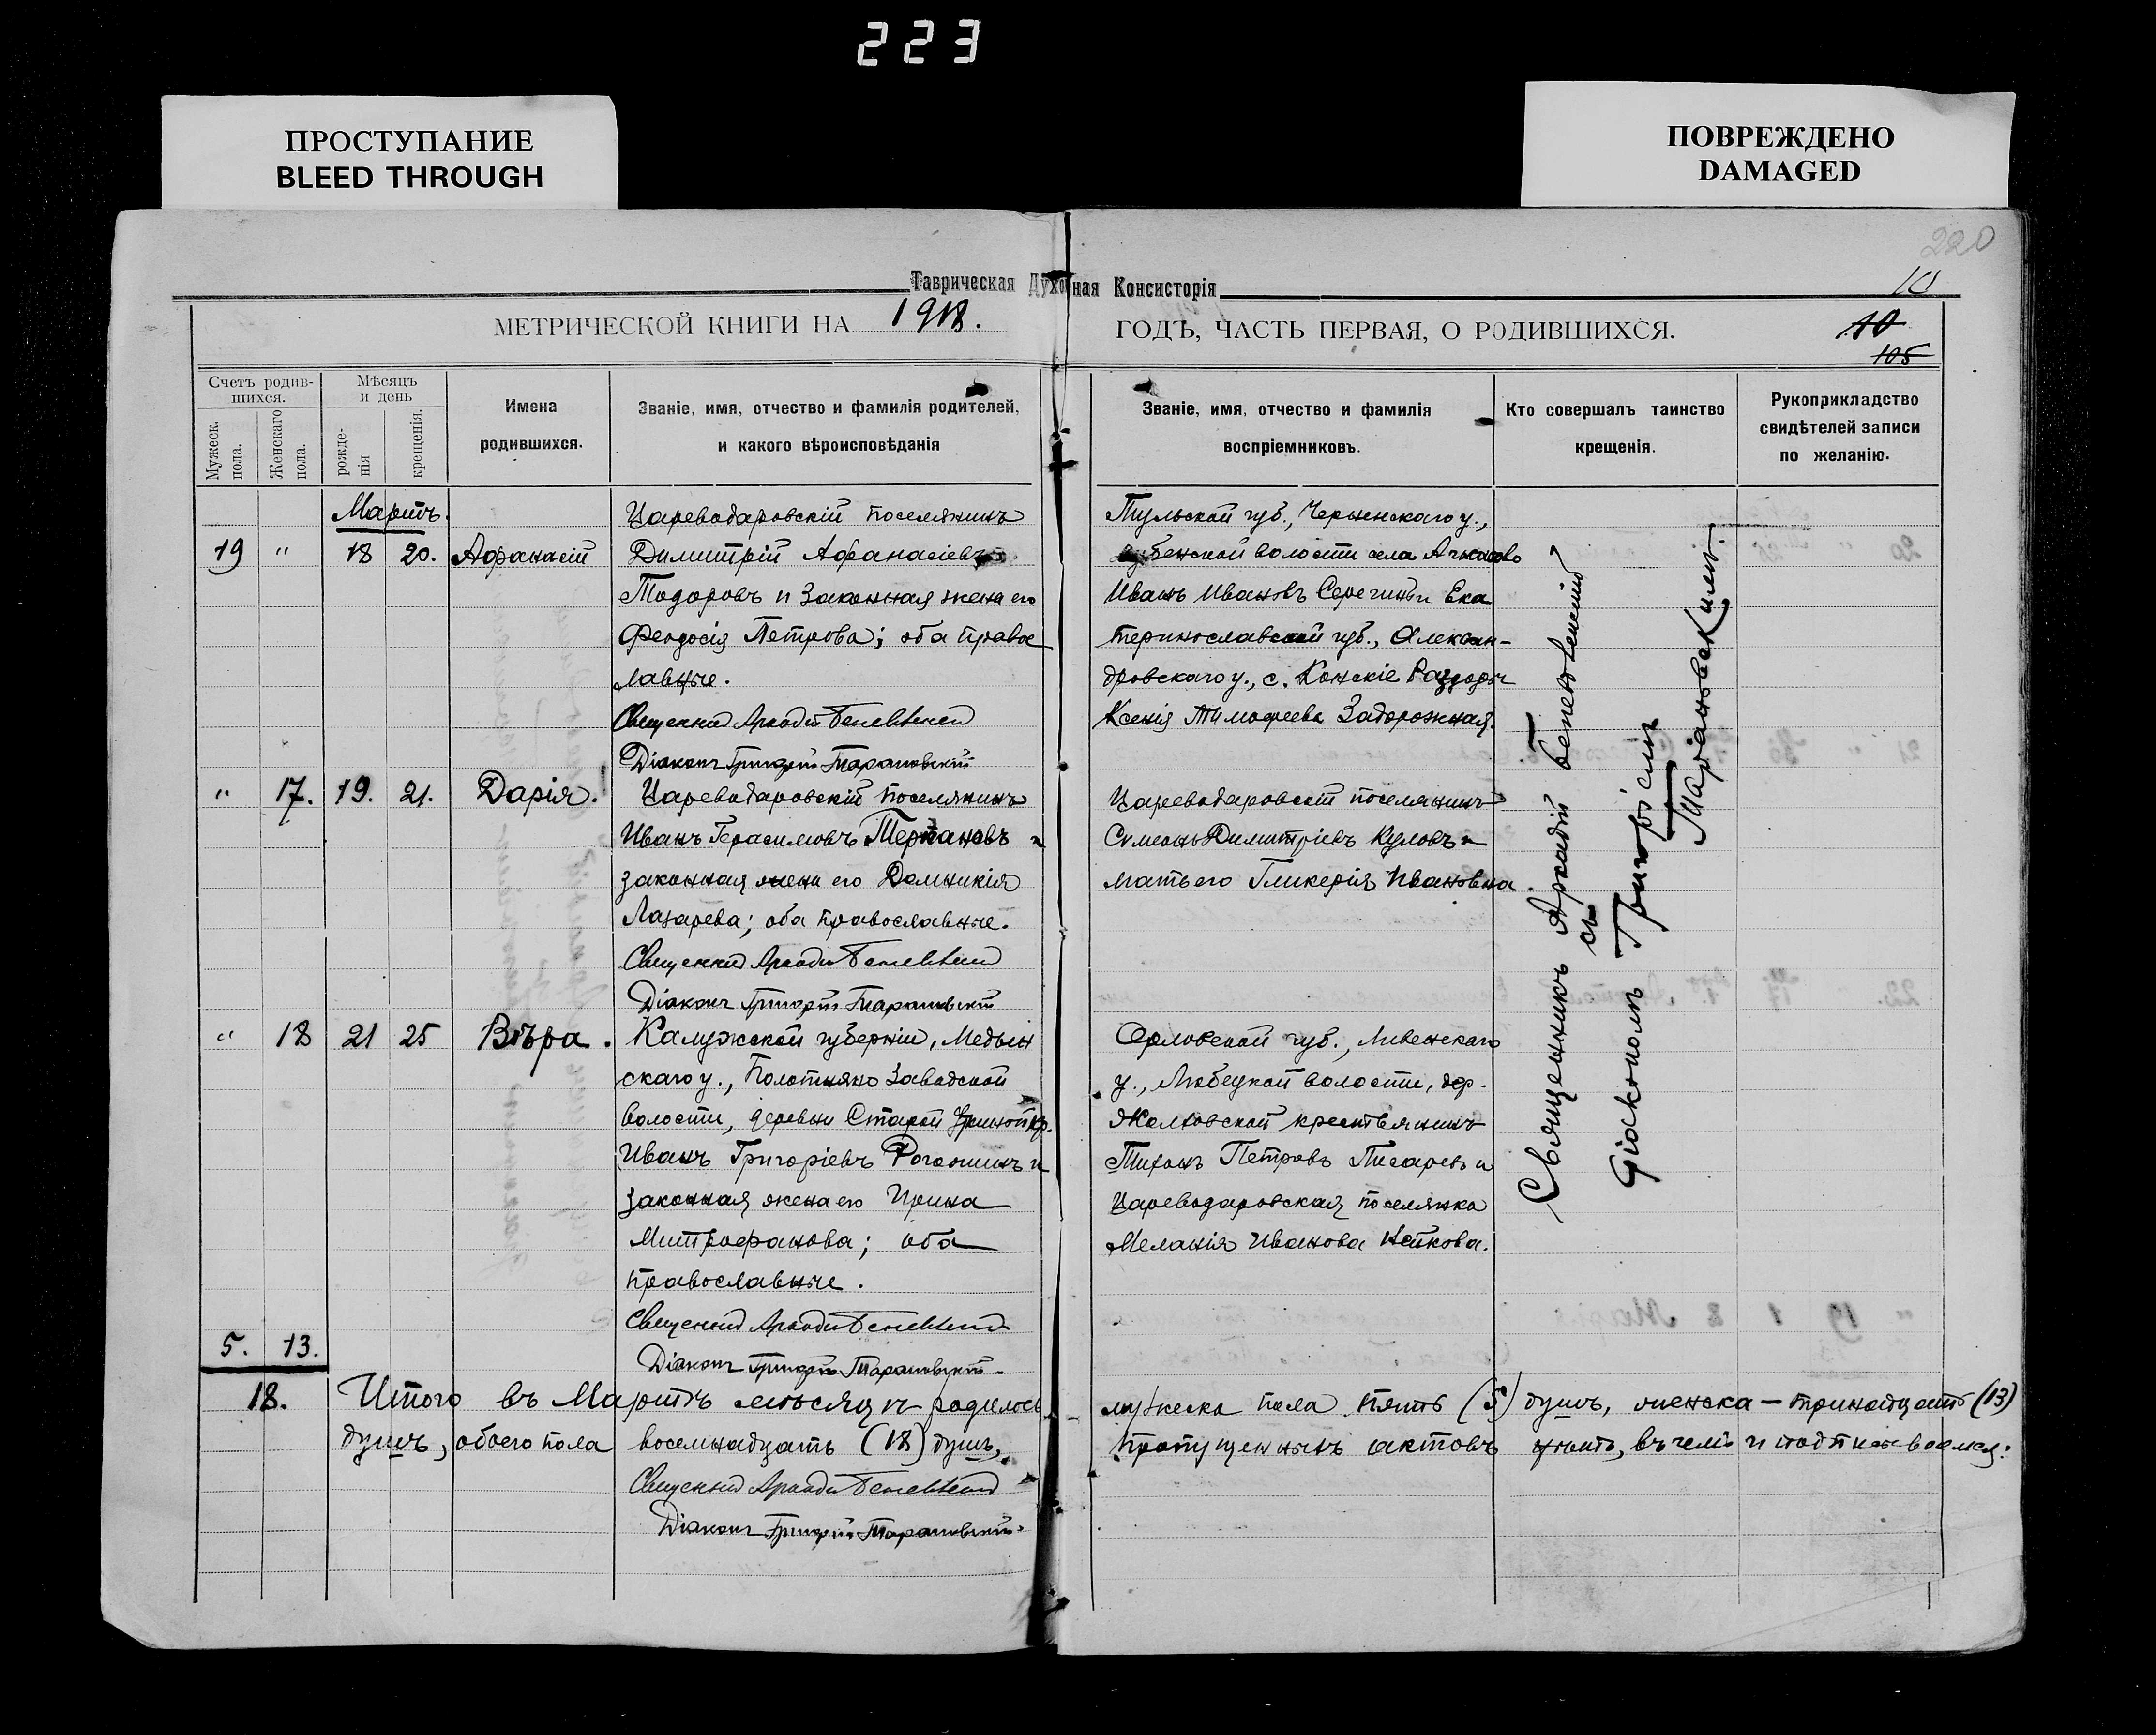 223
ПРОСТУПАНИЕ
BLEED THROUGH
ПОВРЕЖДЕНО
DAMAGED
220
Таврическая Духовная Консисторія
10
МЕТРИЧЕСКОЙ КНИГИ НА 1918.
ГОДЪ, ЧАСТЬ ПЕРВАЯ, О РОДИВШИХСЯ.
10
105
Счетъ родив-
шихся.
Мужеск.
пола.
Женскаго
пола.
Мѣсяцъ
и день
рожде-
нія
крещенія.
Имена
родившихся.
Званіе, имя, отчество и фамилія родителей,
и какого вѣроисповѣданія
Званіе, имя, отчество и фамилія
воспріемниковъ.
Кто совершалъ таинство
крещенія.
Рукоприкладство
свидѣтелей записи
по желанію.
Мартъ.
19 " 18 20. Афанасій
Цареводаровскій поселянинъ
Димитрій Афанасіевъ
Тодоровъ и законная жена его
Феодосія Петрова; оба правос
лавные.
Священникъ Аркадій
Діаконъ Григорій Тарановскій
Тульской губ., Чернскаго у.,
волости села
Иванъ Ивановъ Серегинъ и Ека
теринославской губ., Алексан-
дровскаго у., с. Конскіе Раздоры
Ксенія Тимофеева Задорожная.
" 17. 19. 21. Дарія.
Цареводаровскій поселянинъ
Иванъ Герасимовъ Терзановъ и
законная жена его Домникія
Лазарева; оба православные.
Священникъ Аркадій
Діаконъ Григорій Тарановскій
Цареводаровскій поселянинъ
Симеонъ Димитріевъ Куловъ и
мать его Гликерія Ивановна.
" 18 21 25 Вѣра.
Калужской губерніи, Медын
скаго у., Полотняно Заводской
волости, деревни Старой кр.
Иванъ Григоріевъ Рогожинъ и
законная жена его Ирина
Митрофанова; оба
православные.
Священникъ Аркадій
Діаконъ Григорій Тарановскій
Орловской губ., Ливенскаго
у., Любецкой волости, дер.
Жолховской крестьянинъ
Тихонъ Петровъ Писаревъ и
Цареводаровская поселянка
Меланія Иванова Нейкова.
Священникъ Аркадій
съ
Діакономъ Григоріемъ
Тарановскимъ.
5. 13.
18.
Итого въ Мартѣ мѣсяцѣ родилось мужеска пола пять (5) душъ, женска — тринадцать (13)
душъ, обоего пола восемнадцать (18) душъ, пропущенныхъ актовъ нѣтъ, въ чемъ и подписываемся:
Священникъ Аркадій
Діаконъ Григорій Тарановскій